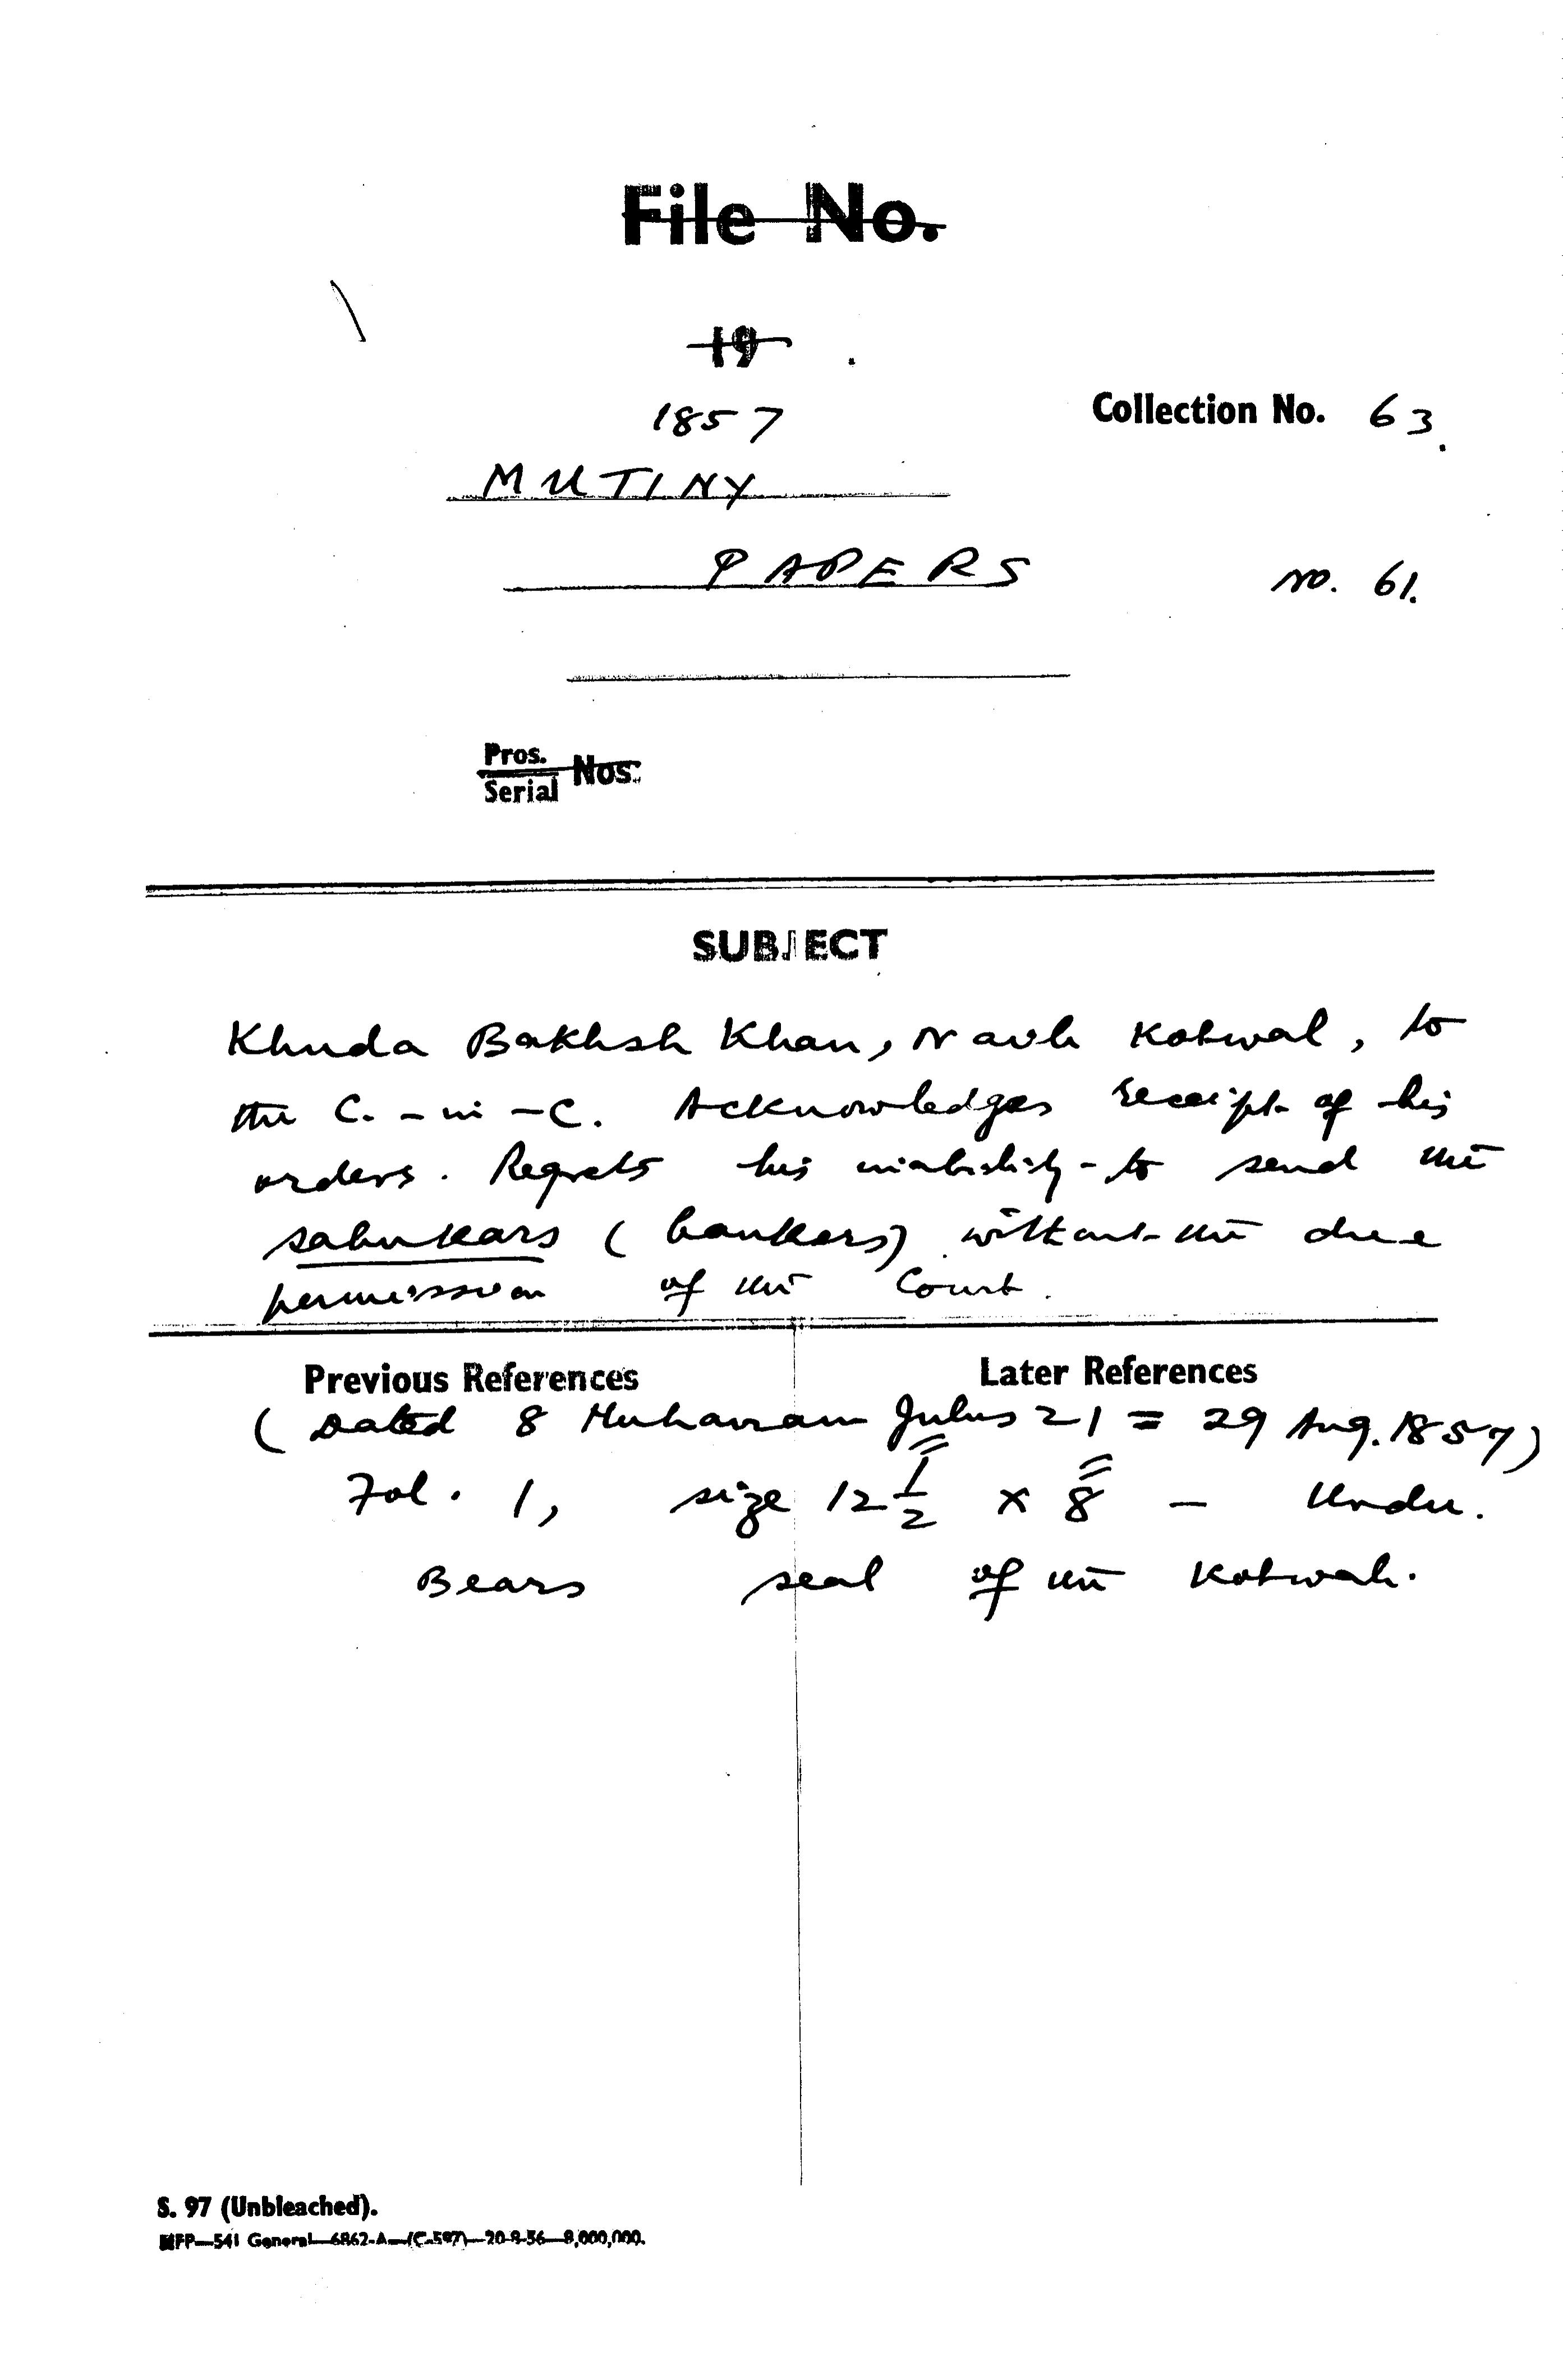 File No.
19
1857
Collection No. 63.
MUTINY
PAPERS
No. 61.
Pros.
Serial Nos.
SUBJECT
Khuda Bakhsh Khan, Naib Kotwal, to
the C.-in-C. Acknowledges receipt of his
orders. Regrets his inability to send the
sahukars (bankers) without the due
permission of the Court.
Previous References
Later References
(Dated 8 Muharram Julus 21 = 29 Aug. 1857)
Fol. 1, size 12 1/2" × 8" — Urdu.
Bears seal of the Kotwali.
S. 97 (Unbleached).
MFP—541 General—6862-A—(C-597)—20-9-56—8,000,000.